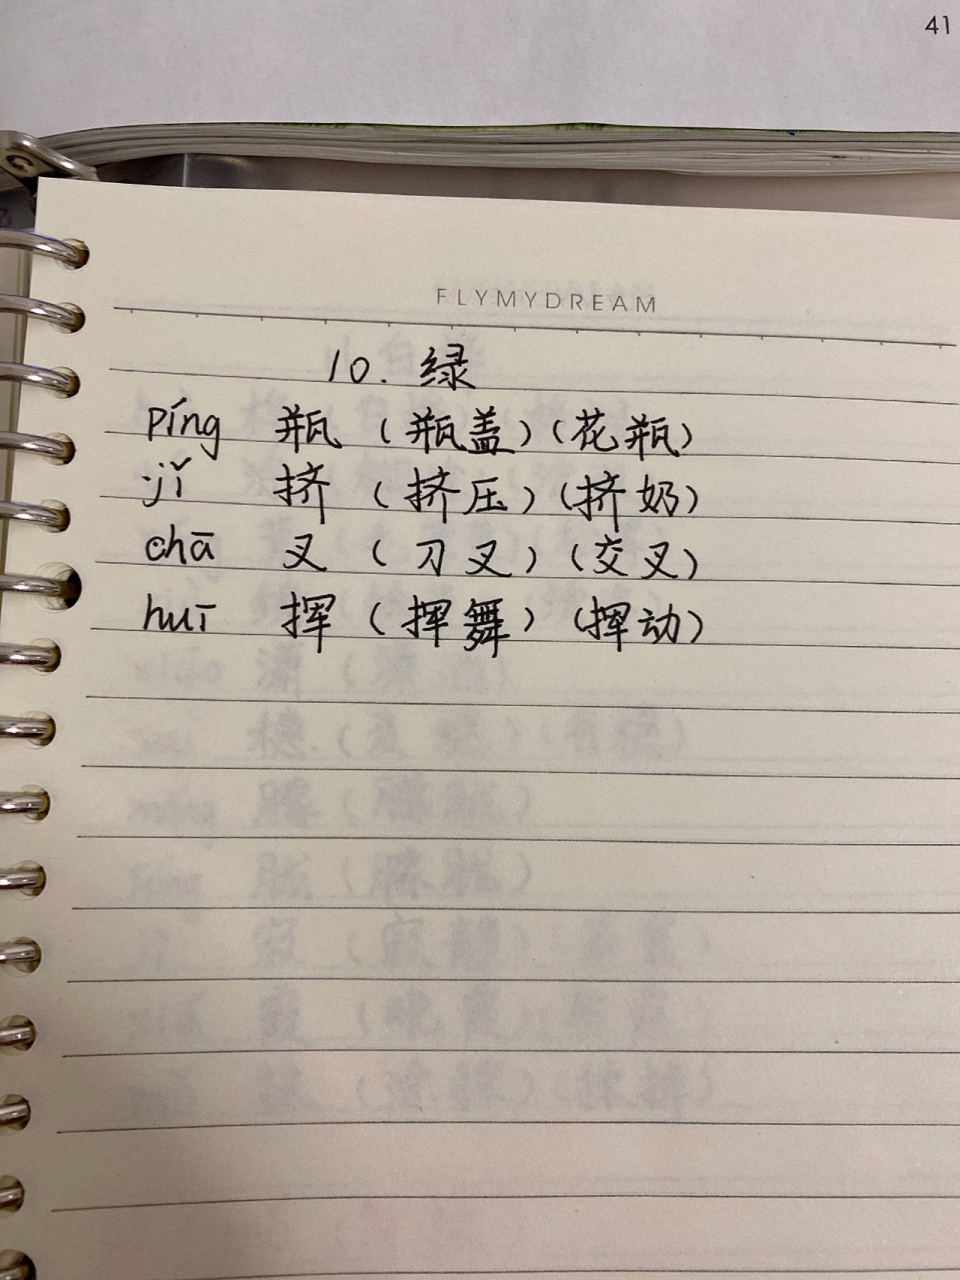 41
FLYMYDREAM
10. 绿
píng 瓶 (瓶盖) (花瓶)
jǐ 挤 (挤压) (挤奶)
chā 叉 (刀叉) (交叉)
huī 挥 (挥舞) (挥动)